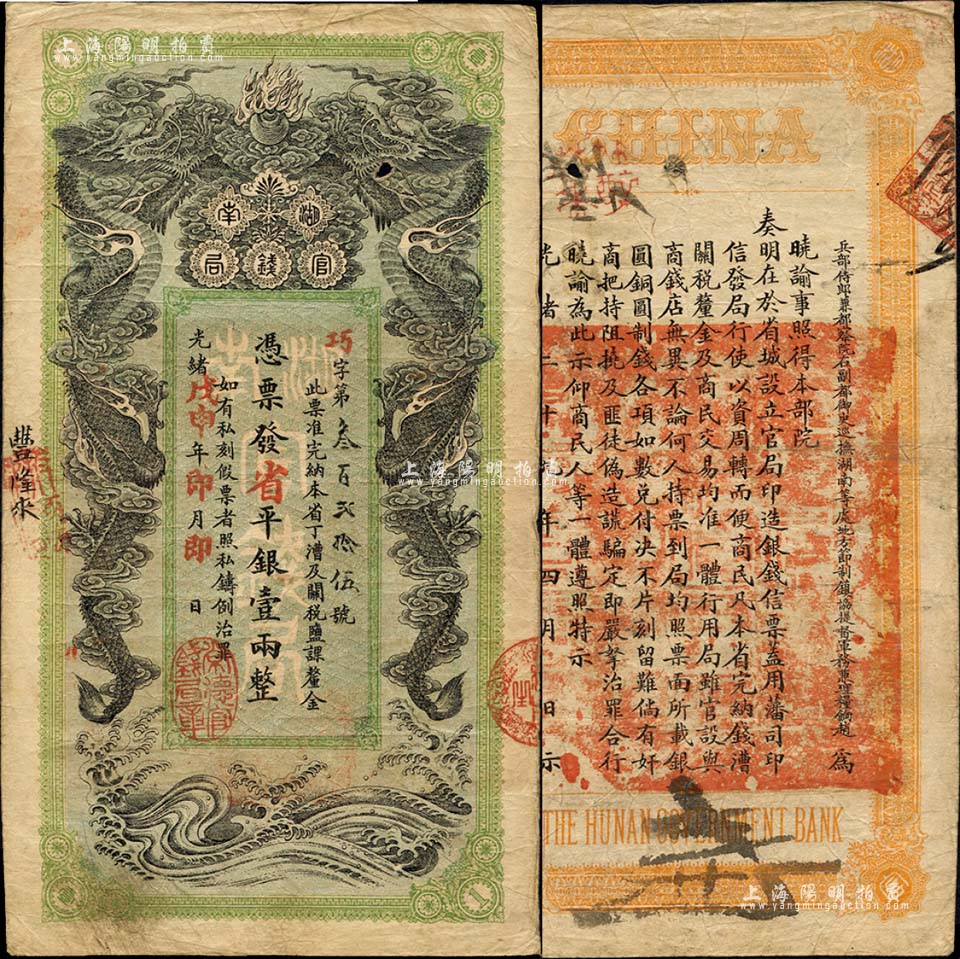 上海陽明拍賣
www.yangmingauction.com
湖南
官錢局
巧字第叁百貳拾伍號
此票准完納本省丁漕及關税鹽課釐金
憑票發省平銀壹兩整
如有私刻假票者照私鑄例治罪
光緒戊申年印月印日
豐隆永
上海陽明拍賣
www.yangmingauction.com
1
CHINA
兵部侍郎兼都察院右副都御史巡撫湖南等處地方節制鎮協提督軍務兼理糧餉趙為
曉諭事照得本部院
奏明在於省城設立官局印造銀錢信票蓋用藩司印
信發局行使以資周轉而便商民凡本省完納錢漕
關税釐金及商民交易均准一體行用局雖官設與
商錢店無異不論何人持票到局均照票面所載銀
圓銅圓制錢各項如數兑付决不片刻留難倘有奸
商把持阻撓及匪徒偽造謊騙定即嚴拏治罪合行
曉諭為此示仰商民人等一體遵照特示
光緒二十年四月日示
THE HUNAN GOVERNMENT BANK
上海陽明拍賣
www.yangmingauction.com